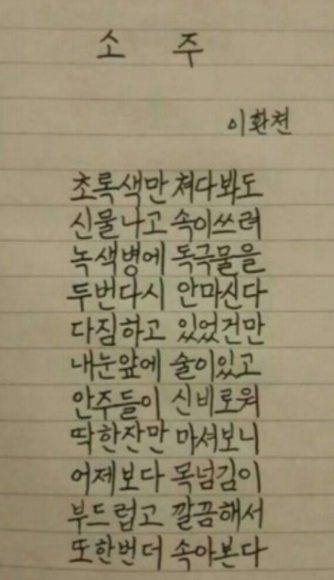 소 주
이환천
초록색만 쳐다봐도
신물나고 속이쓰려
녹색병에 독극물을
두번다시 안마신다
다짐하고 있었건만
내눈앞에 술이있고
안주들이 신비로워
딱한잔만 마셔보니
어제보다 목넘김이
부드럽고 깔끔해서
또한번더 속아본다